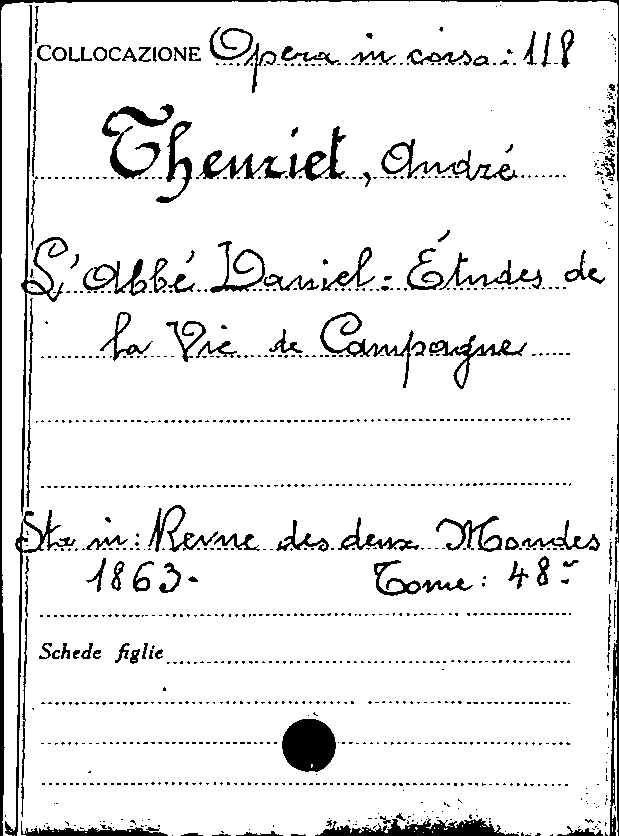 COLLOCAZIONE Opera in corso: 118
Theuriet, André
L'Abbé Daniel - Études de
la Vie de Campagne
Sta in: Revue des deux Mondes
1863- Tome: 48-
Schede figlie